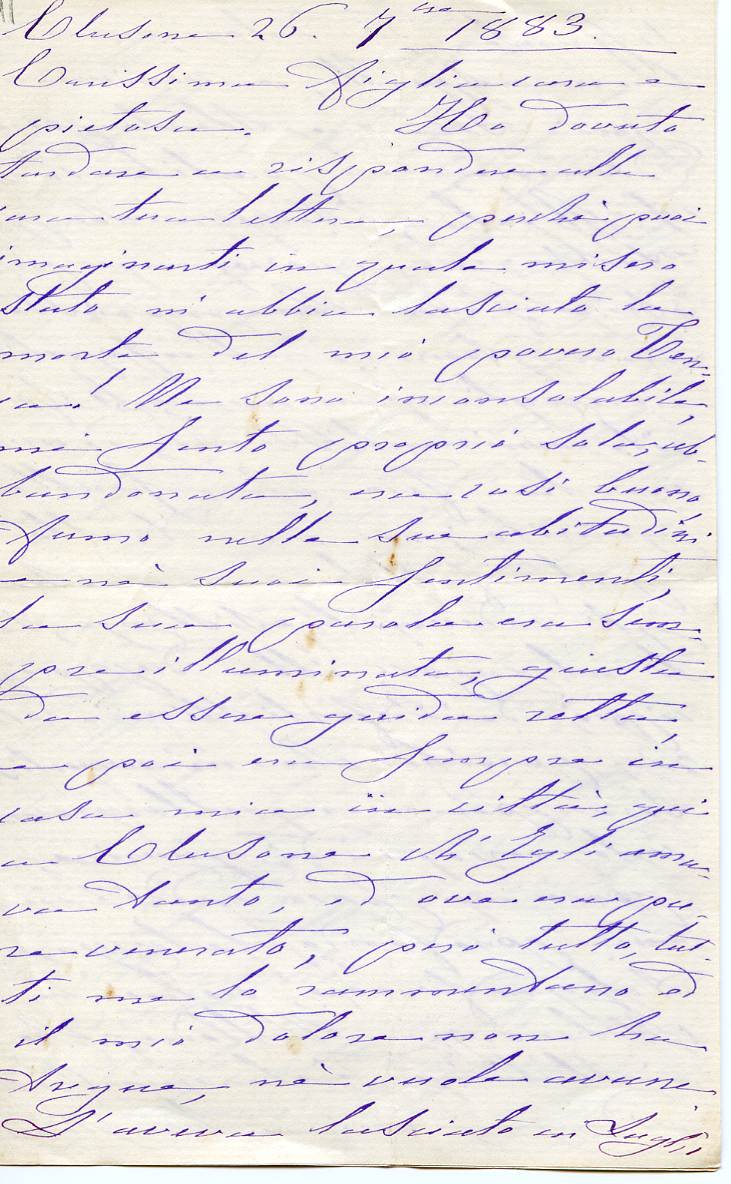 Clusone 26. 7bre 1883.
Carissima Figlia cara e
pietosa. Ho dovuto
tardare a rispondere alla
cara tua lettera, perchè puoi
imaginarti in quale misero
stato m'abbia lasciato la
morte del mio povero Ten-
ca! Ne sono inconsolabile,
mi sento proprio sola, ab-
bandonata, era così buono,
sumo nelle sue abitudini
e nè suoi sentimenti,
la sua parola era sem-
pre illuminata, giusta
da essere guida retta,
e poi era sempre in
casa mia in città, qui
a Clusone ch'Egli ama-
va tanto, ed ove era pu-
re venerato, però tutto, tut-
ti me lo rammentano ed
il mio dolore non ha
tregua, nè vuole avere
L'aveva lasciato in Luglio